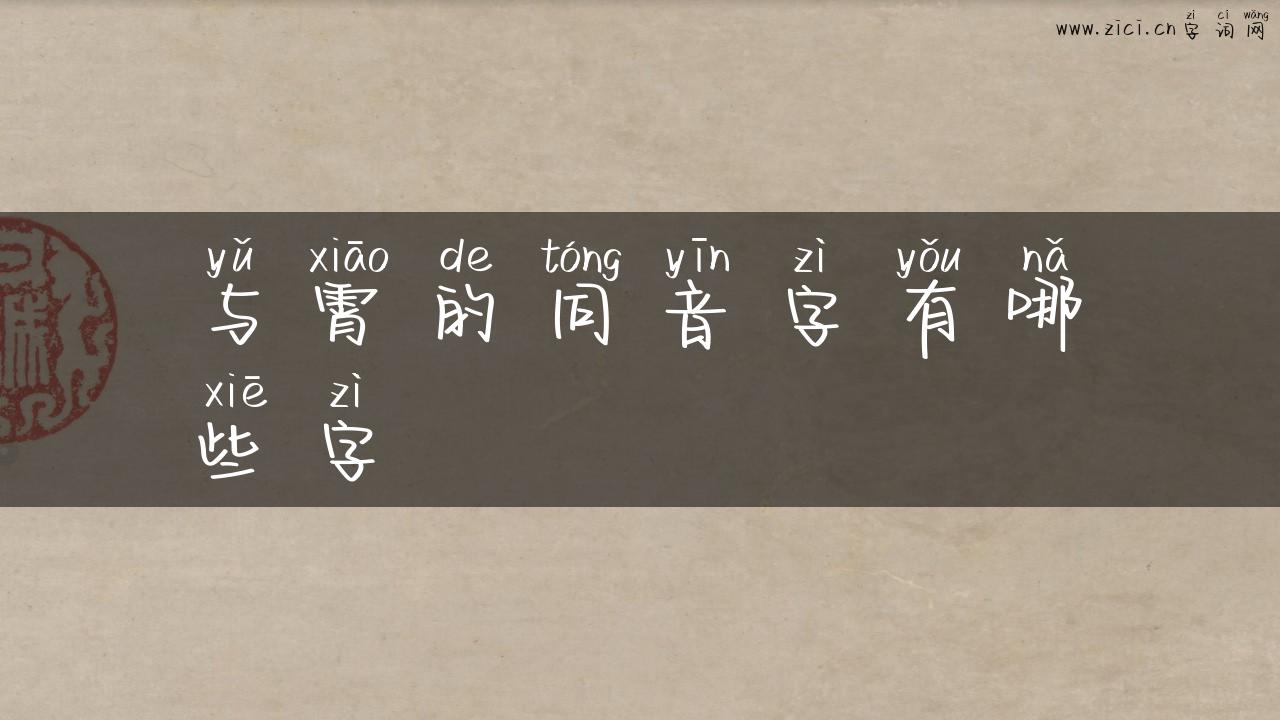 zì cí wǎng
www.zici.cn 字词网
yǔ xiāo de tóng yīn zì yǒu nǎ
与霄的同音字有哪
xiē zì
些字